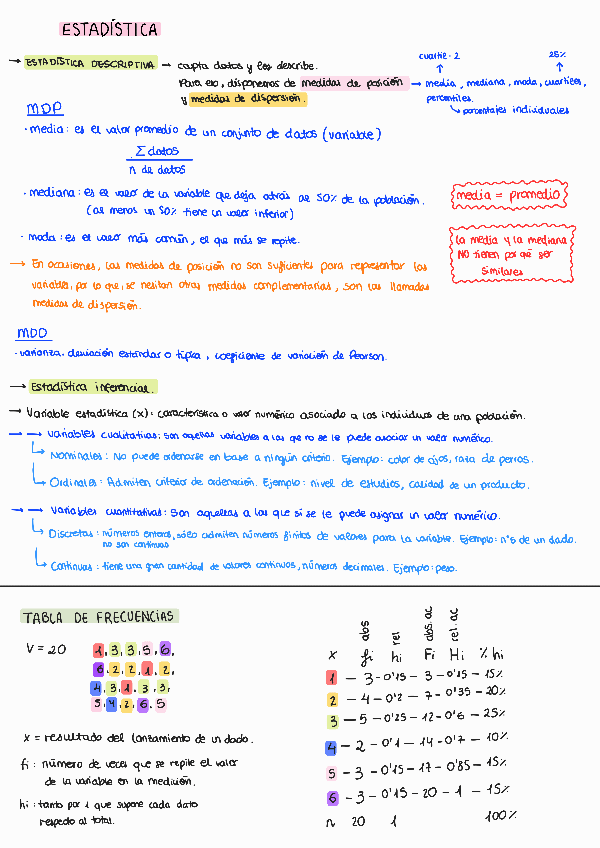 ESTADÍSTICA
→ ESTADÍSTICA DESCRIPTIVA → capta datos y los describe.
Para eso, disponemos de medidas de posición → media, mediana, moda, cuartiles, percentiles.
cuartil-2 25%
↳ porcentajes individuales
y medidas de dispersión.
MDP
· media: es el valor promedio de un conjunto de datos (variable)
Σ datos
n de datos
· mediana: es el valor de la variable que deja atrás al 50% de la población.
(al menos un 50% tiene un valor inferior)
media = promedio
· moda: es el valor más común, el que más se repite.
la media y la mediana
NO tienen por qué ser
similares
→ En ocasiones, las medidas de posición no son suficientes para representar las
variables, por lo que, se nesitan otras medidas complementarias, son las llamadas
medidas de dispersión.
MDD
· varianza. desviación estándar o típica, coeficiente de variación de Pearson.
→ Estadística inferencial.
→ Variable estadística (x): característica o valor numérico asociado a los individuos de una población.
→ → Variables cualitativas: son aquellas variables a las que no se le puede asociar un valor numérico.
↳ Nominales: No puede ordenarse en base a ningún criterio. Ejemplo: color de ojos, raza de perros.
↳ Ordinales: Admiten criterio de ordenación. Ejemplo: nivel de estudios, calidad de un producto.
→ → Variables cuantitativas: Son aquellas a las que si se le puede asignar un valor numérico.
↳ Discretas: números enteros, sólo admiten números finitos de valores para la variable. Ejemplo: nºs de un dado.
no son continuos
↳ Continuas: tiene una gran cantidad de valores continuos, números decimales. Ejemplo: peso.
TABLA DE FRECUENCIAS
V = 20
1, 3, 3, 5, 6,
6, 2, 2, 1, 2,
4, 3, 1, 3, 3,
5, 4, 2, 6, 5
x = resultado del lanzamiento de un dado.
fi: número de veces que se repite el valor
de la variable en la medición.
hi: tanto por 1 que supone cada dato
respecto al total.
abs rel abs. ac rel. ac
x fi hi Fi Hi % hi
1 – 3 – 0'15 – 3 – 0'15 – 15%
2 – 4 – 0'2 – 7 – 0'35 – 20%
3 – 5 – 0'25 – 12 – 0'6 – 25%
4 – 2 – 0'1 – 14 – 0'7 – 10%
5 – 3 – 0'15 – 17 – 0'85 – 15%
6 – 3 – 0'15 – 20 – 1 – 15%
n 20 1 100%